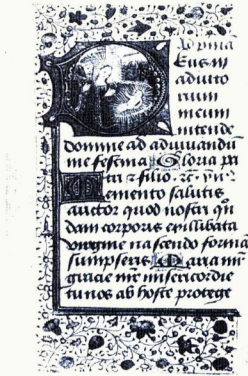 Ad prima
Eus in
adiuto
rium
meum
intende
domine ad adiuvandu
me festina Gloria pa
tri et filio et
Memento salutis
auctor quod nostri qn
dam corporis ex illibata
virgine nascendo formã
sumpseris Maria mr
gracie mr misericordie
tu nos ab hoste protege